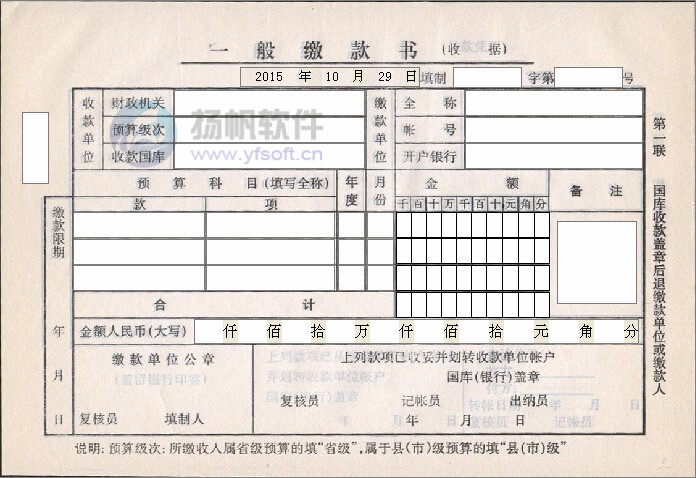 一般缴款书(收据)
2015 年 10 月 29 日填制 字第 号
收款单位 财政机关 缴款单位 全称
预算级次 帐号
收款国库 开户银行
扬帆软件
www.yfsoft.cn
预算科目(填写全称) 年度 月份 金额 备注
款 项 千百十万千百十元角分
缴款限期
合计
年 金额人民币(大写) 仟 佰 拾 万 仟 佰 拾 元 角 分
缴款单位公章 上列款项已收妥并划转收款单位帐户
(盖留银行印鉴) 国库(银行)盖章
月 复核员 记帐员 出纳员
日 复核员 填制人 年 月 日
第一联 国库收款盖章后退缴款单位或缴款人
说明:预算级次:所缴收人属省级预算的填“省级”,属于县(市)级预算的填“县(市)级”